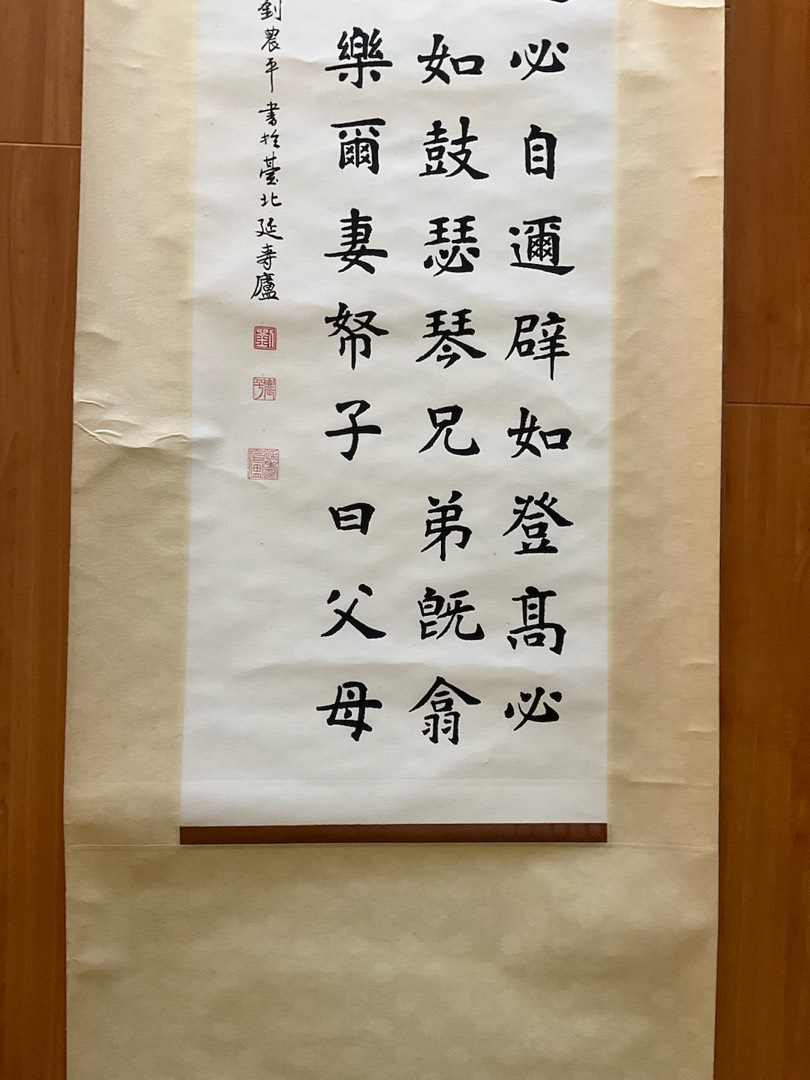 必自邇辟如登高必
如鼓瑟琴兄弟既翕
樂爾妻帑子曰父母
劉農平書於臺北延壽廬
劉
農平
延壽廬